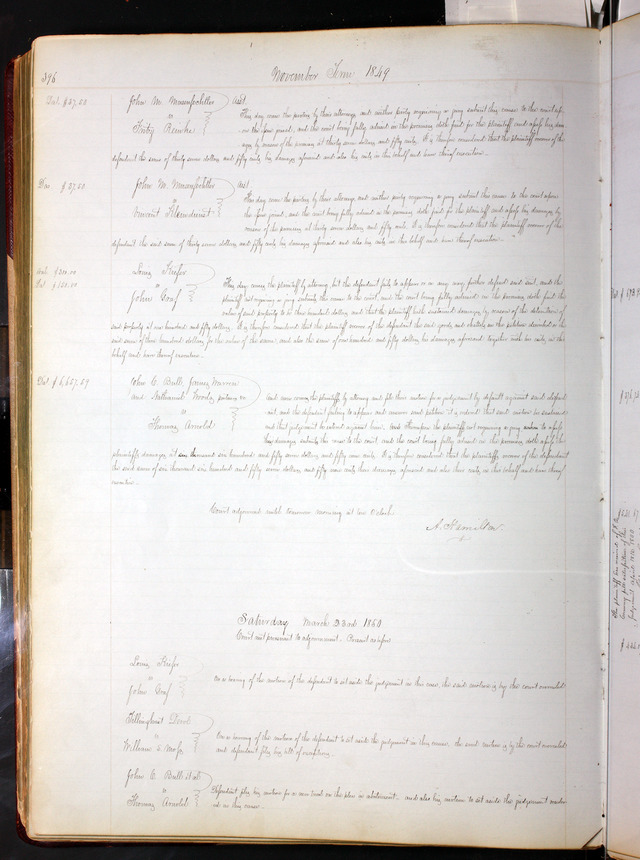 396
November Term 1849
Dat. $37.50
John M. Muenpschitter
vs
Fritz Reinike
Asst.
This day came the parties by their attorneys and neither party requiring a jury submit this cause to the court upon
the issue joined, and the court being fully advised in the premises doth find for the plaintiff and assess his dam
ages by reason of the premises at thirty seven dollars and fifty cents. It is therefore considered that the plaintiff recover of the
defendant the sum of thirty seven dollars and fifty cents his damages aforesaid and also his costs in this behalf and have thereof execution.
Dam $37.50
John M. Muenpschitter
vs
Vincent
Asst
This day came the parties by their attorneys and neither party requiring a jury submit this cause to the court upon
the issue joined, and the court being fully advised in the premises doth find for the plaintiff and assess his damages by
reason of the premises at thirty seven dollars and fifty cents. It is therefore considered that the plaintiff recover of the
defendant the said sum of thirty seven dollars and fifty cents his damages aforesaid and also his costs in this behalf and have thereof execution.
$200.00
Dat $150.00
Louis Kiefer
vs
John Graf
This day comes the plaintiff by attorney but the defendant fails to appear or in any way further defend said suit, and the
plaintiff not requiring a jury submits the cause to the court, and the court being fully advised in the premises doth find the
value of said property to be two hundred dollars and that the plaintiff hath sustained damages by reason of the detention of
said property at one hundred and fifty dollars. It is therefore considered that the plaintiff recover of the defendant the said goods and chattels in the petition described or the
said sum of two hundred dollars for the value of the same and also the sum of one hundred and fifty dollars his damages aforesaid together with his costs in this
behalf and have thereof execution.
Dat $6,657.59
John C. Bull James Warrin
and Nathaniel Woods partners &c
vs
Thomas Arnold
And now comes the plaintiffs by attorney and file their motion for a judgement by default against said defend
ant, and the defendant failing to appear and answer said petition it is ordered that said motion be sustained
and that judgement be entered against him. And thereupon the plaintiffs not requiring a jury
submits the cause to the court and the court being fully advised in the premises doth assess the
plaintiffs damages at six thousand six hundred and fifty seven dollars and fifty nine cents. It is therefore considered that the plaintiffs recover of the defendant
the said sum of six thousand six hundred and fifty seven dollars and fifty nine cents their damages aforesaid and also their costs in this behalf and have thereof
execution.
Court adjourned until tomorrow morning at ten Oclock
A. Hamilton
Saturday March 23rd 1850
Court met pursuant to adjournment. Present as before
Louis Kiefer
vs
John Graf
On a hearing of the motion of the defendant to set aside the judgement in this cause, the said motion is by the court overruled
Tillinghast
vs
William S. Moss
On a hearing of the motion of the defendant to set aside the judgement in this cause, the said motion is by the court overruled
and defendant files his bill of exceptions.
John C. Bull et al
vs
Thomas Arnold
Defendant files his motion for a new trial on the plea in abatement. and also his motion to set aside the judgement render
ed in this cause.